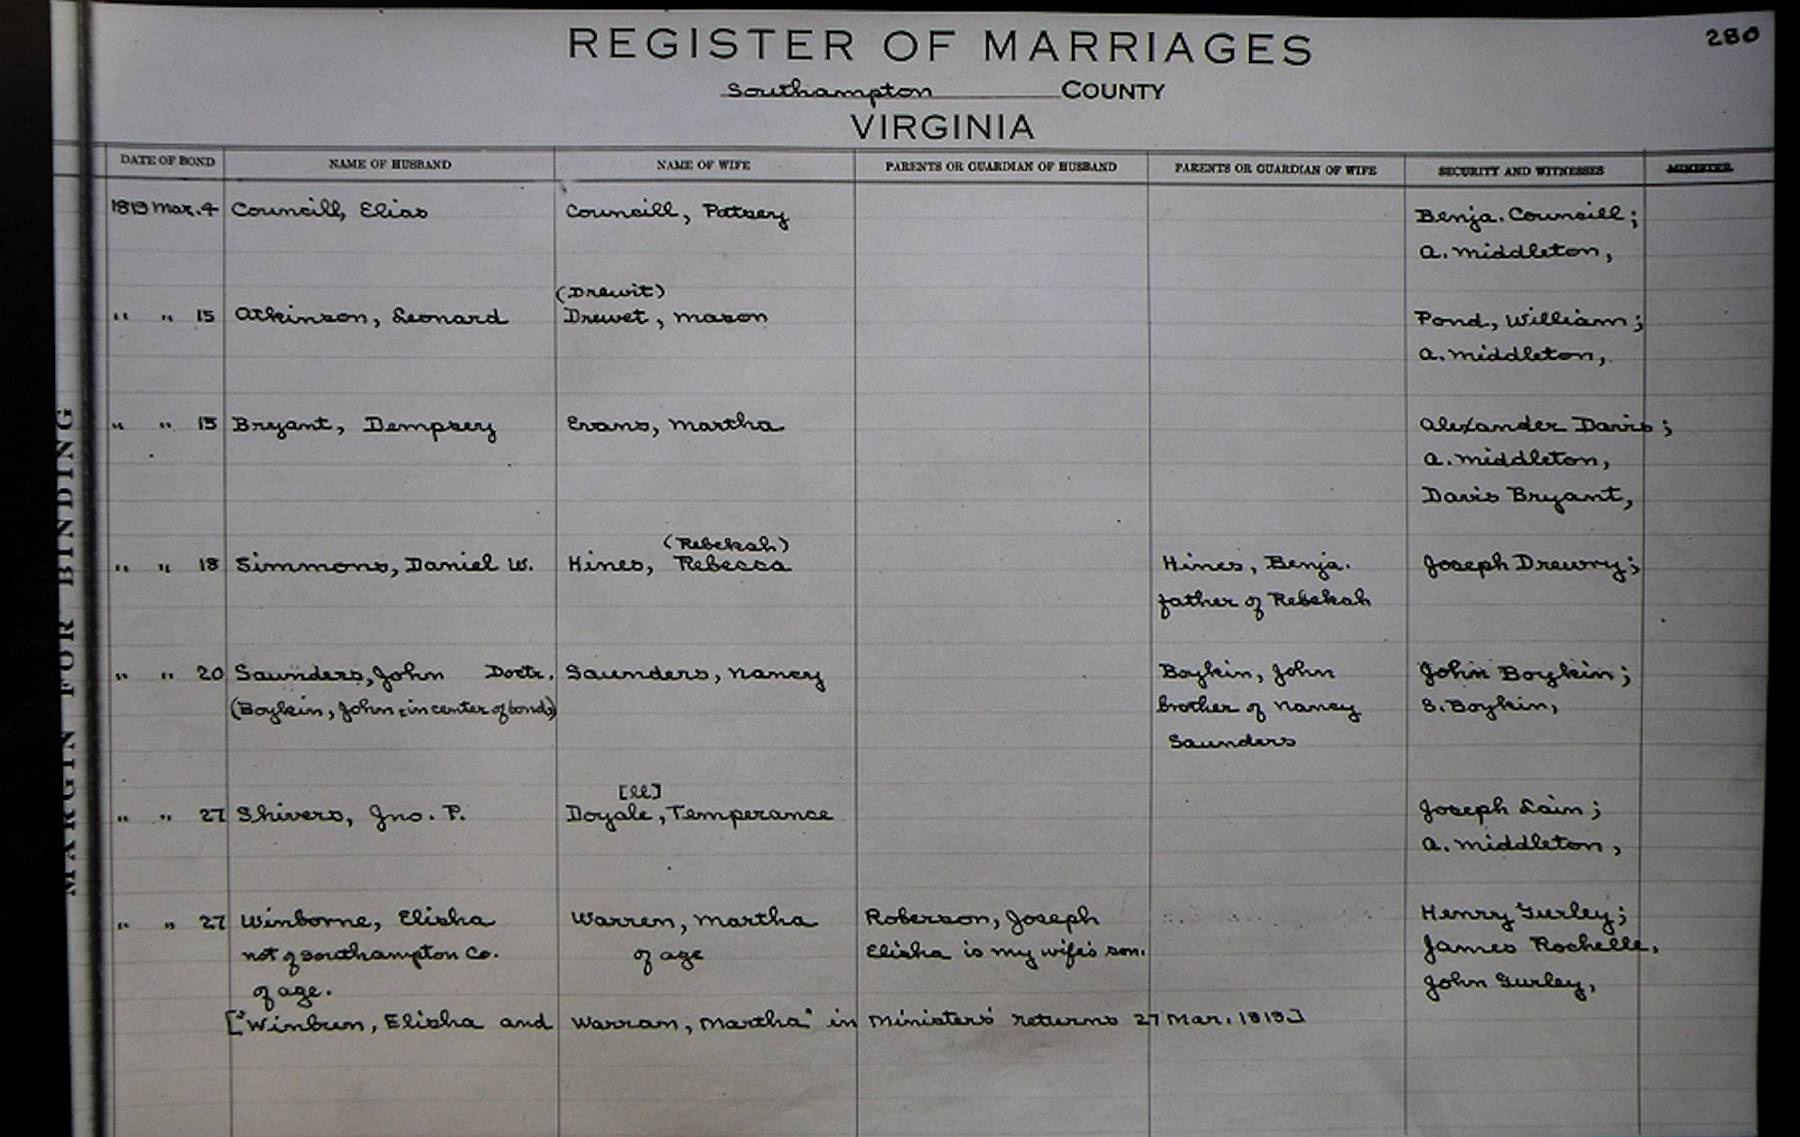 280
REGISTER OF MARRIAGES
Southampton COUNTY
VIRGINIA
MARGIN FOR BINDING
DATE OF BOND NAME OF HUSBAND NAME OF WIFE PARENTS OR GUARDIAN OF HUSBAND PARENTS OR GUARDIAN OF WIFE SECURITY AND WITNESSES MINISTER
1819 Mar. 4 Councill, Elias Councill, Patsey Benja. Councill;
A. Middleton,
(Drewit)
" " 15 Atkinson, Leonard Drewet, Mason Pond, William;
A. Middleton,
" " 15 Bryant, Dempsey Evans, Martha Alexander Davis;
A. Middleton,
Davis Bryant,
(Rebekah)
" " 18 Simmons, Daniel W. Hines, Rebecca Hines, Benja. Joseph Drewry;
father of Rebekah
" " 20 Saunders, John Doctr. Saunders, Nancy Boykin, John John Boykin;
(Boykin, John in center of bond) brother of Nancy S. Boykin,
Saunders
[ll]
" " 27 Shivers, Jno. P. Doyale, Temperance Joseph Lain;
A. Middleton,
" " 27 Winborne, Elisha Warren, Martha Roberson, Joseph Henry Gurley;
not of Southampton Co. of age Elisha is my wife's son. James Rochelle,
of age. John Gurley,
["Winbun, Elisha and Warran, Martha" in Ministers' returns 27 Mar. 1819]